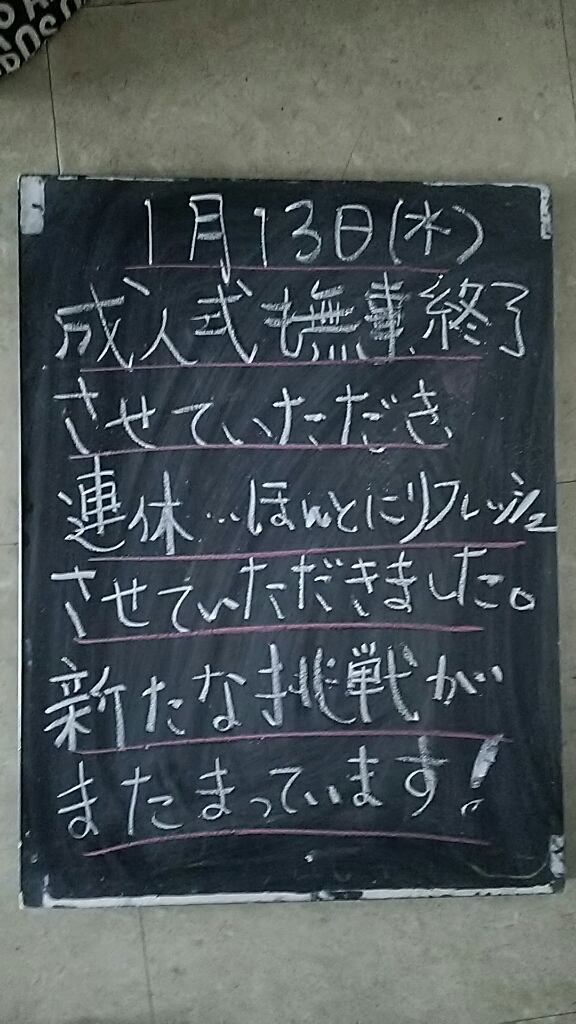 1月13日(水)
成人式も無事終了
させていただき
連休…ほんとにリフレッシュ
させていただきました。
新たな挑戦が
またまっています!